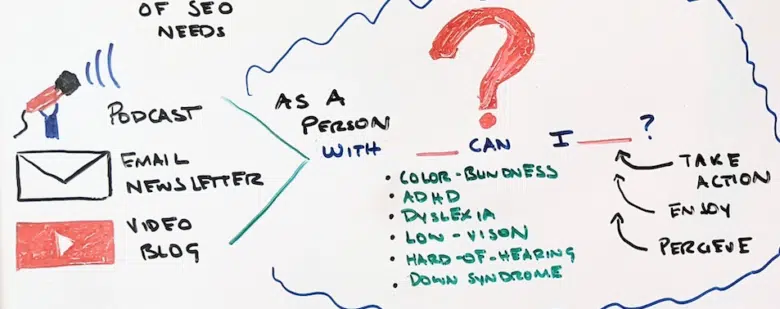 OF SEO
NEEDS
PODCAST
EMAIL
NEWSLETTER
VIDEO
BLOG
AS A
PERSON
WITH ___ CAN I ___ ?
• COLOR-BLINDNESS
• ADHD
• DYSLEXIA
• LOW-VISON
• HARD-OF-HEARING
• DOWN SYNDROME
TAKE
ACTION
ENJOY
PERCIEVE